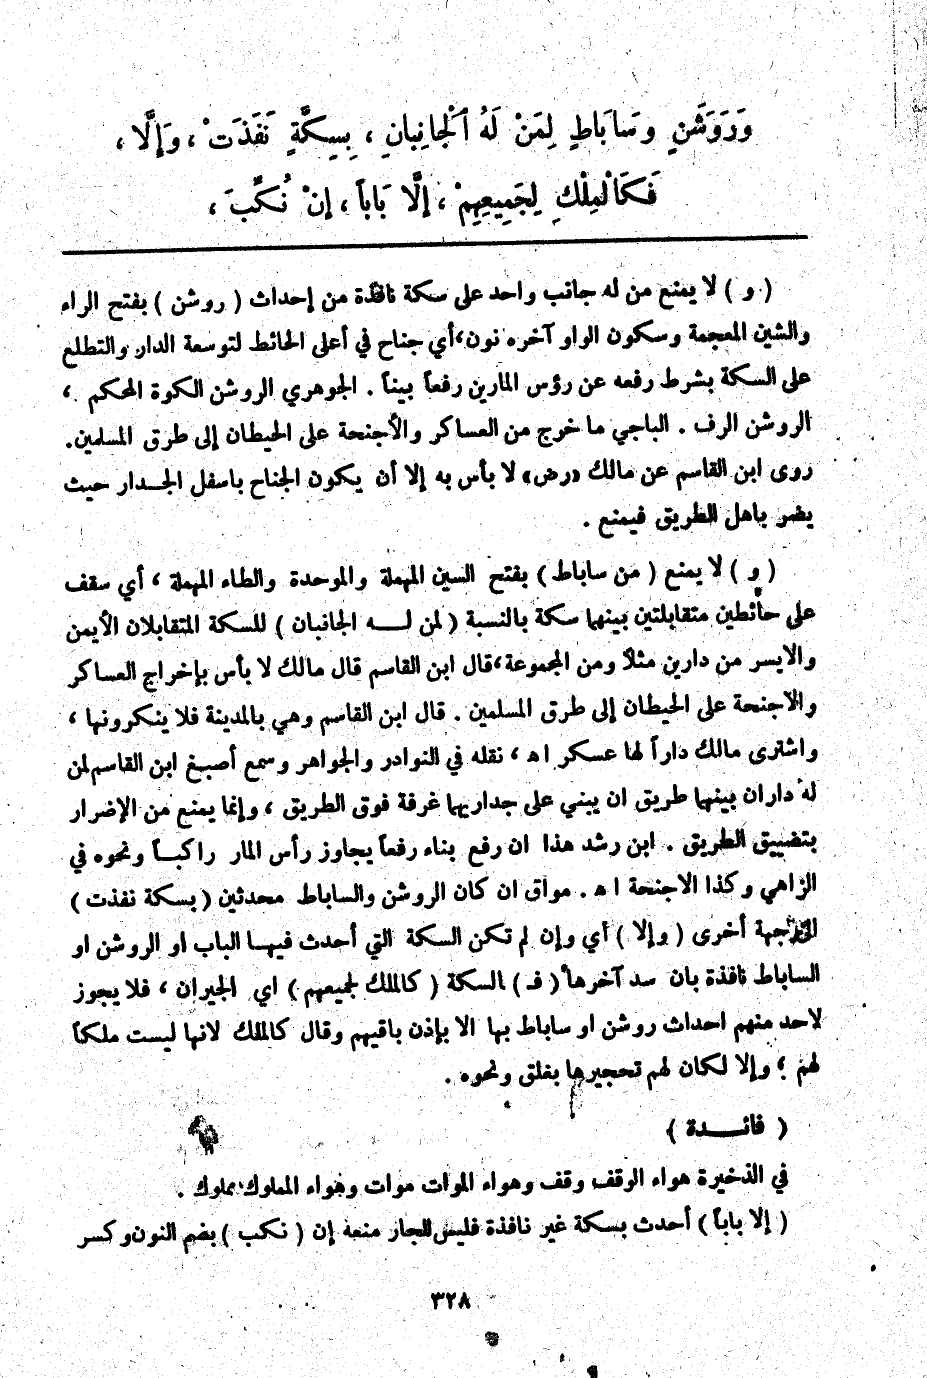 وَرَوْشَنٍ وسَابَاطٍ لِمَنْ لَهُ ٱلْجانِبانِ ، بِسِكَّةٍ نَفَذَتْ ، وَإِلَّا ،
فَكَالْمِلْكِ لِجَمِيعِهِمْ ، إِلَّا بَاباً ، إِنْ نُكِّبَ ،
( و ) لا يمنع من له جانب واحد على سكة نافذة من إحداث ( روشن ) بفتح الراء
والشين المعجمة وسكون الواو آخره نون، أي جناح في أعلى الحائط لتوسعة الدار والتطلع
على السكة بشرط رفعه عن رؤس المارين رفعاً بيناً . الجوهري الروشن الكوة المحكم ،
الروشن الرف . الباجي ما خرج من العساكر والأجنحة على الحيطان إلى طرق المسلمين.
روى ابن القاسم عن مالك «رض» لا بأس به إلا أن يكون الجناح باسفل الجـدار حيث
يضر باهل الطريق فيمنع .
( و ) لا يمنع ( من ساباط ) بفتح السين المهملة والموحدة والطاء المهملة ، أي سقف
على حائطين متقابلتين بينهما سكة بالنسبة ( لمن لـــه الجانبان ) للسكة المتقابلان الأيمن
والايسر من دارين مثلاً ومن المجموعة، قال ابن القاسم قال مالك لا بأس بإخراج العساكر
والاجنحة على الحيطان إلى طرق المسلمين . قال ابن القاسم وهي بالمدينة فلا ينكرونها ،
واشترى مالك داراً لها عسكر اه ، نقله في النوادر والجواهر وسمع أصبغ ابن القاسم لمن
له داران بينهما طريق ان يبني على جداريهما غرفة فوق الطريق ، وإنما يمنع من الإضرار
بتضييق الطريق . ابن رشد هذا ان رفع بناء رفعاً يجاوز رأس المار راكبـاً ونحوه في
الزاهي وكذا الاجنحة اه . مواق ان كان الروشن والساباط محدثين ( بسكة نفذت )
لجهة أخرى ( وإلا ) أي وإن لم تكن السكة التي أحدث فيهـا الباب او الروشن او
الساباط نافذة بان سد آخرها ( فـ ) السكة ( كالملك لجميعهم ) اي الجيران ، فلا يجوز
لاحد منهم احداث روشن او ساباط بها الا بإذن باقيهم وقال كالملك لانها ليست ملكاً
لهم ، وإلا لكان لهم تحجيرها بغلق ونحوه .
( فائـــدة )
في الذخيرة هواء الوقف وقف وهواء الموات موات وهواء المملوك مملوك .
( إلا باباً ) أحدث بسكة غير نافذة فليس للجار منعه إن ( نكب ) بضم النون وكسر
٣٢٨